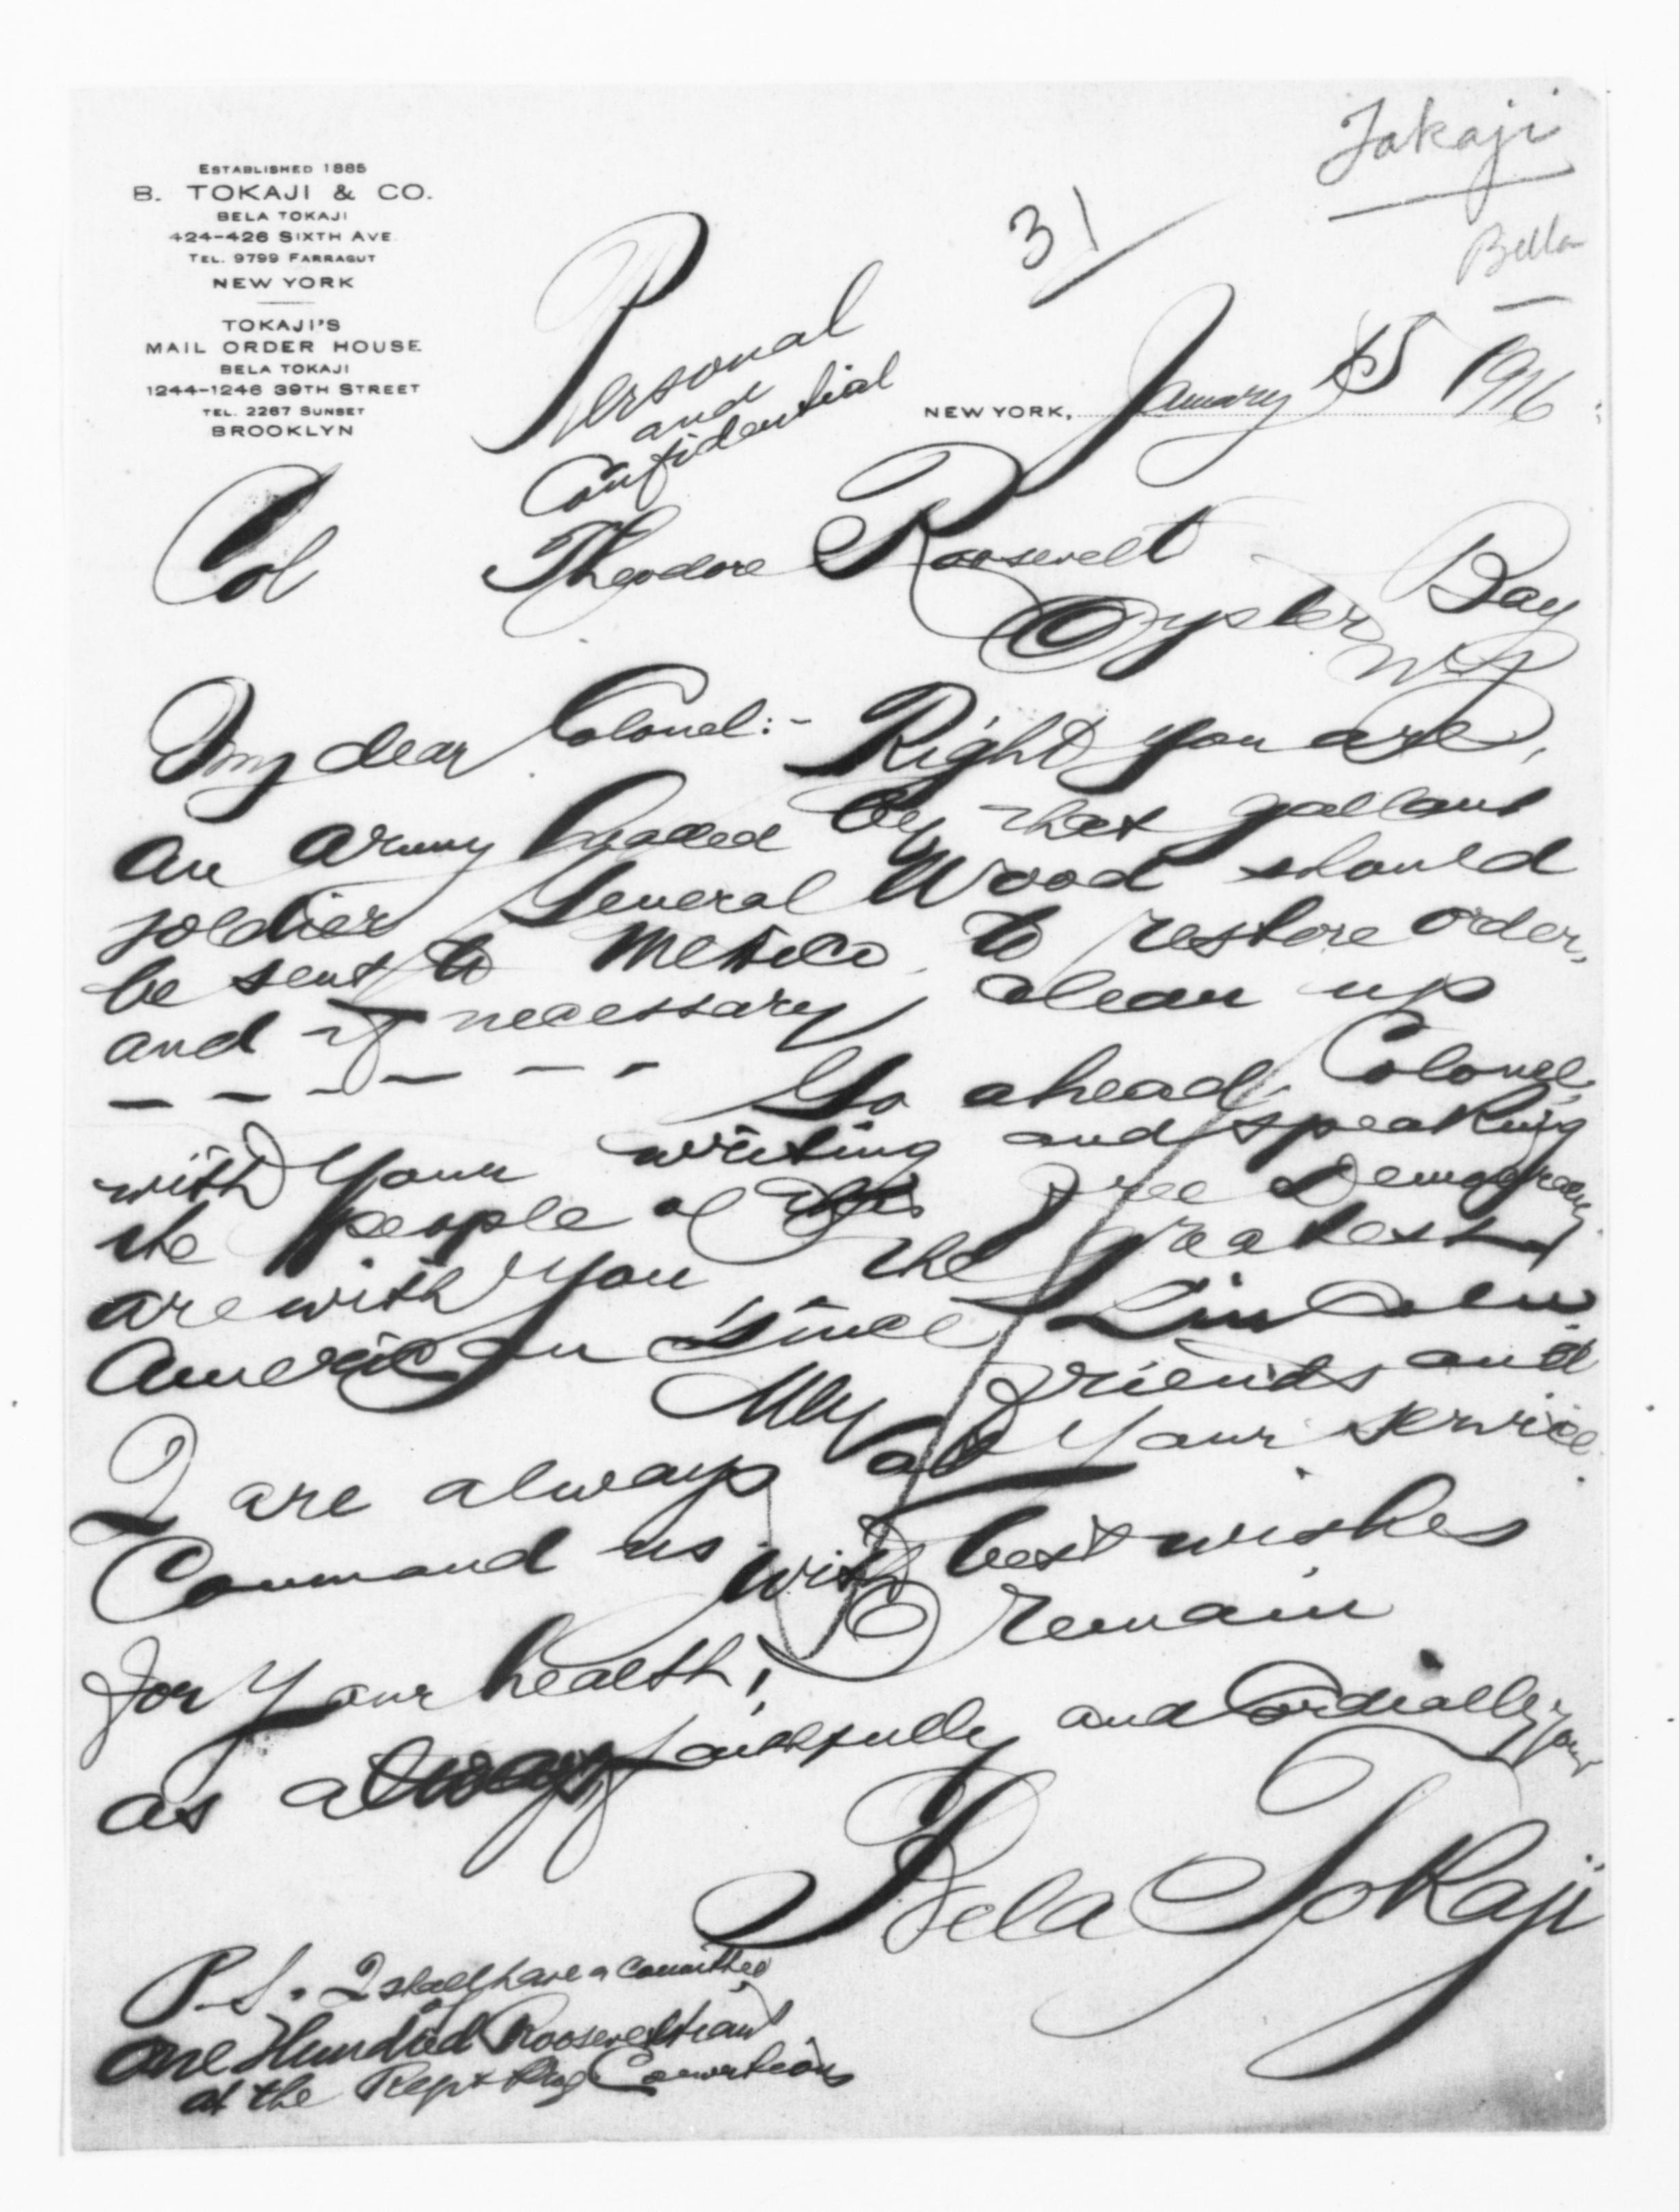 Tokaji
Bella
31/
ESTABLISHED 1885
B. TOKAJI & CO.
BELA TOKAJI
424-426 SIXTH AVE.
TEL. 9799 FARRAGUT
NEW YORK
TOKAJI'S
MAIL ORDER HOUSE
BELA TOKAJI
1244-1246 39TH STREET
TEL. 2267 SUNSET
BROOKLYN
Personal
and
Confidential
NEW YORK, January 15 1916
Col Theodore Roosevelt
Oyster Bay
NY
My dear Colonel:- Right you are,
an army headed by that gallant
soldier General Wood should
be sent to Mexico to restore order,
and if necessary, clean up
- - - - - - Go ahead, Colonel,
with your writing and speaking
the people of this Free Democracy
are with you the greatest
American since Lincoln.
My friends and
I are always at your service.
Command us. With best wishes
for your health, I remain
as always faithfully and cordially yours
Bela Tokaji
P.S. I shall have a committee
of
One Hundred Rooseveltians
at the Rep & Prog Conventions